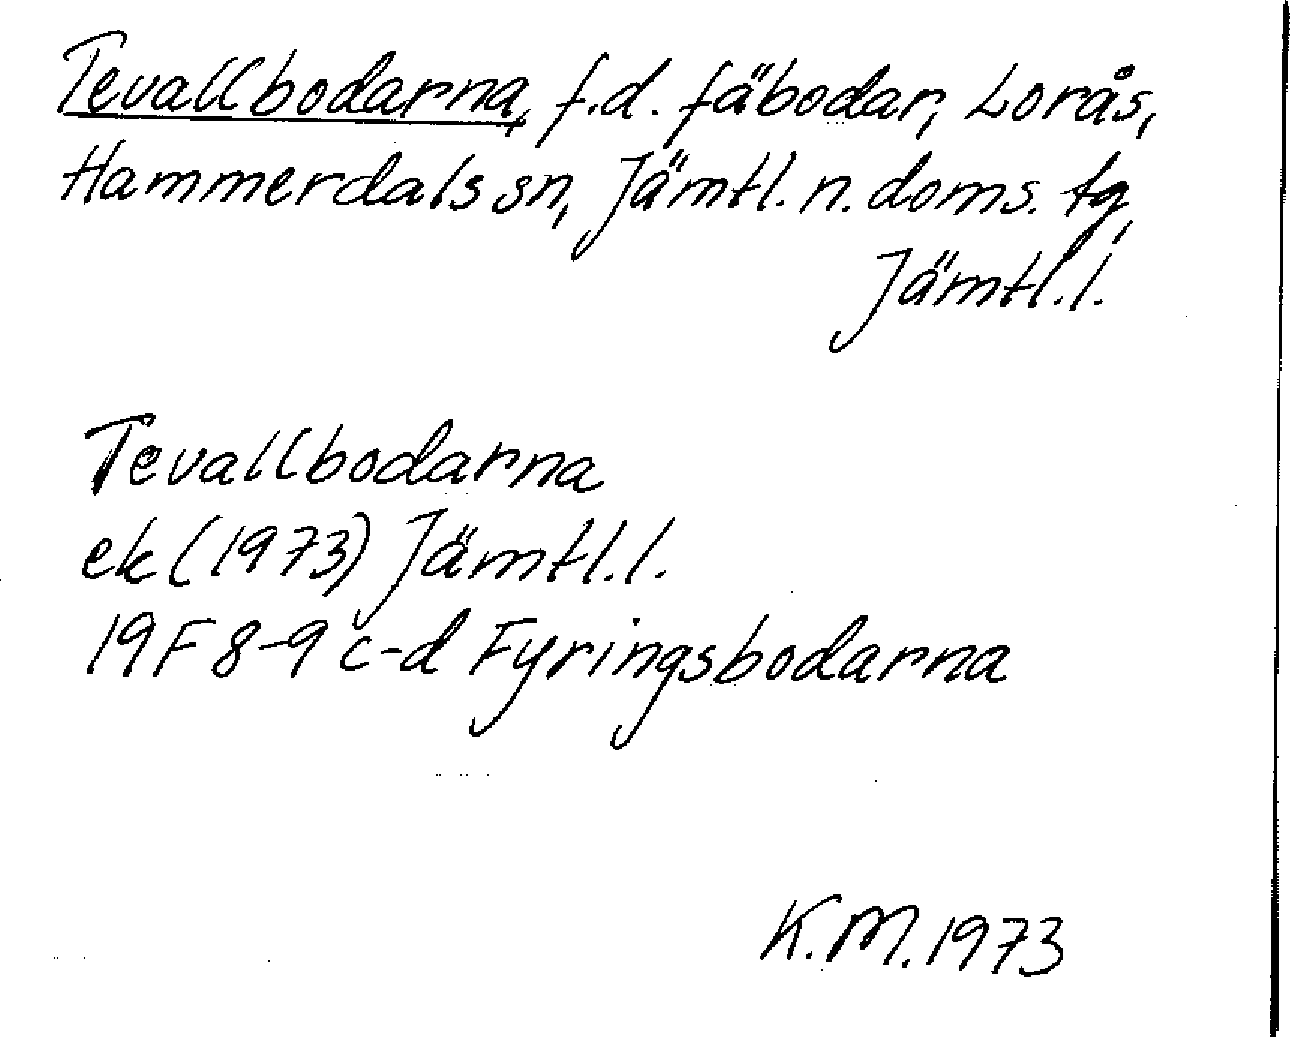 Tevallbodarna, f.d. fäbodar, Lorås,
Hammerdals sn, Jämtl. n. doms. tg,
Jämtl. l.
Tevallbodarna
ek (1973) Jämtl. l.
19F 8-9 c-d Fyringsbodarna
K.M. 1973